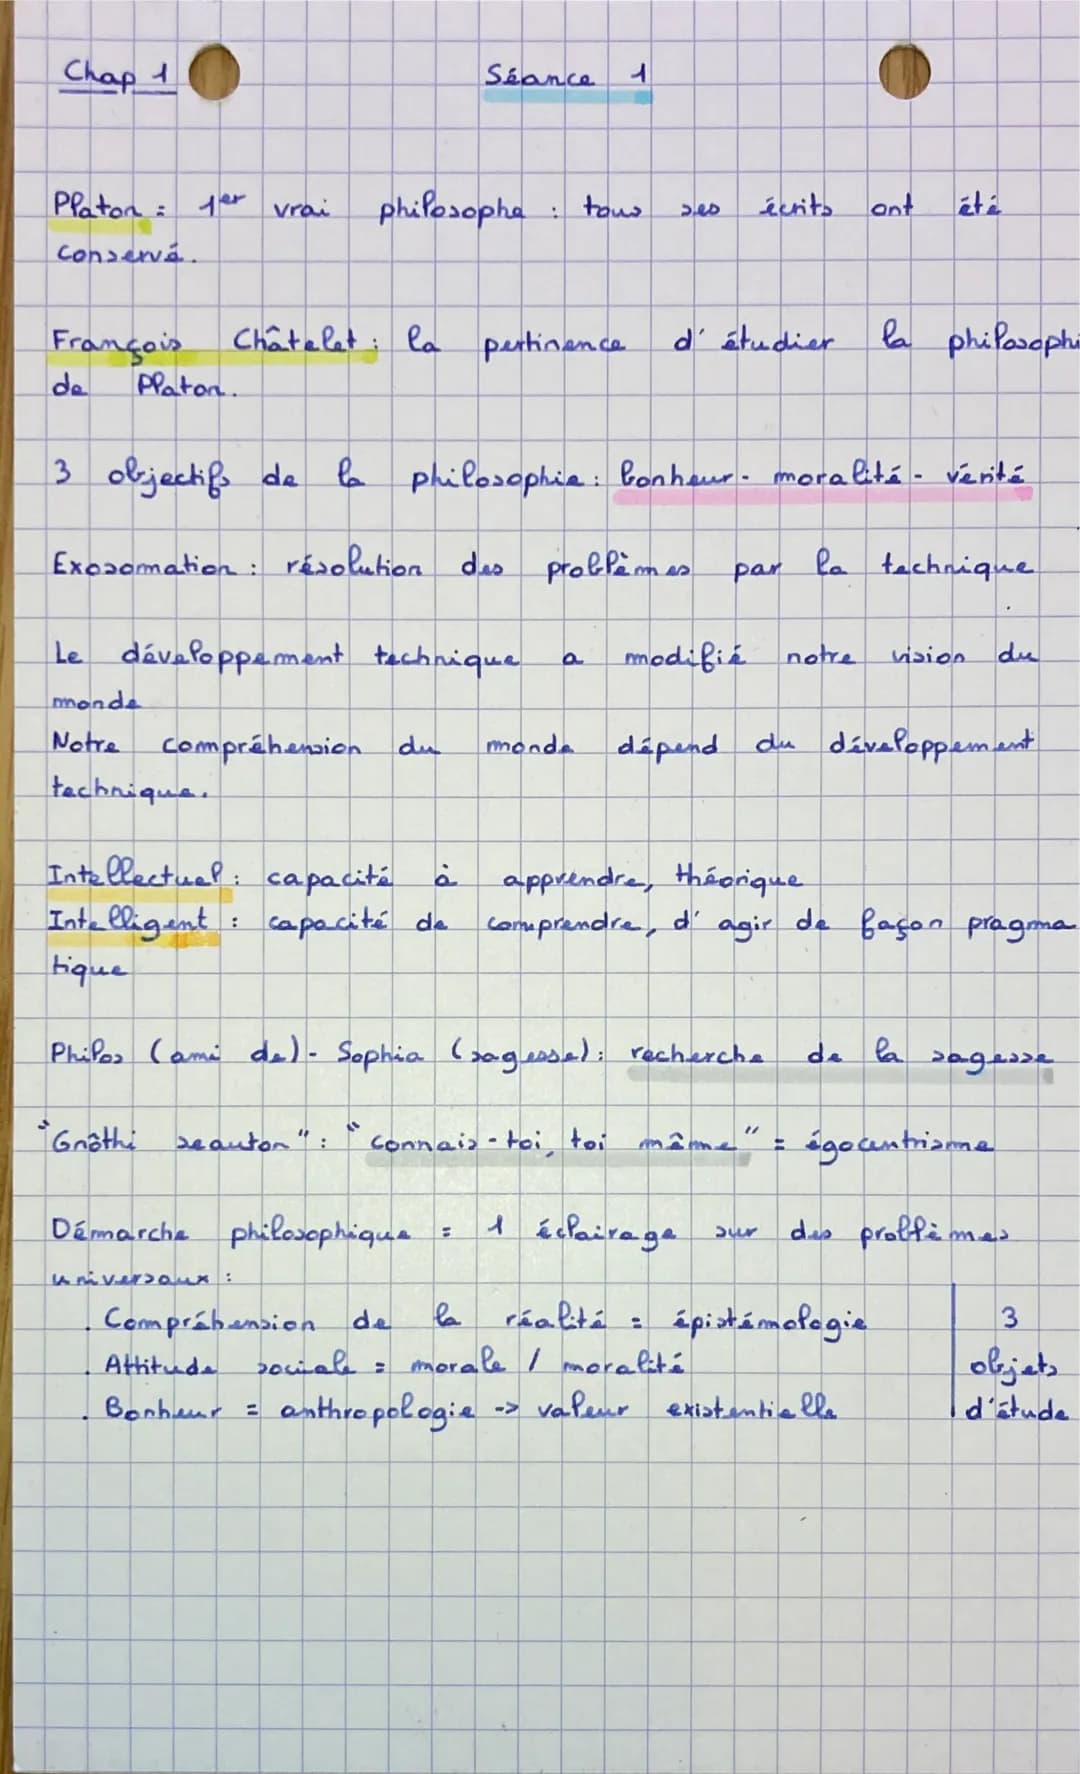 Chap 1
Séance 1
Platon : 1er vrai philosophe : tous ses écrits ont été
conservé.
François Châtelet : la pertinence d'étudier la philosophi
de Platon.
3 objectifs de la philosophie : bonheur - moralité - vérité
Exosomation : résolution des problèmes par la technique
.
Le développement technique a modifié notre vision du
monde
Notre compréhension du monde dépend du développement
technique.
Intellectuel : capacité à apprendre, théorique
Intelligent : capacité de comprendre, d'agir de façon pragma
tique
Philos (ami de) - Sophia (sagesse) : recherche de la sagesse
"Gnôthi seauton" : "connais-toi, toi même" = égocentrisme
Démarche philosophique = 1 éclairage sur des problèmes
universaux :
. Compréhension de la réalité = épistémologie
. Attitude sociale = morale / moralité
. Bonheur = anthropologie -> valeur existentielle
3
objets
d'étude